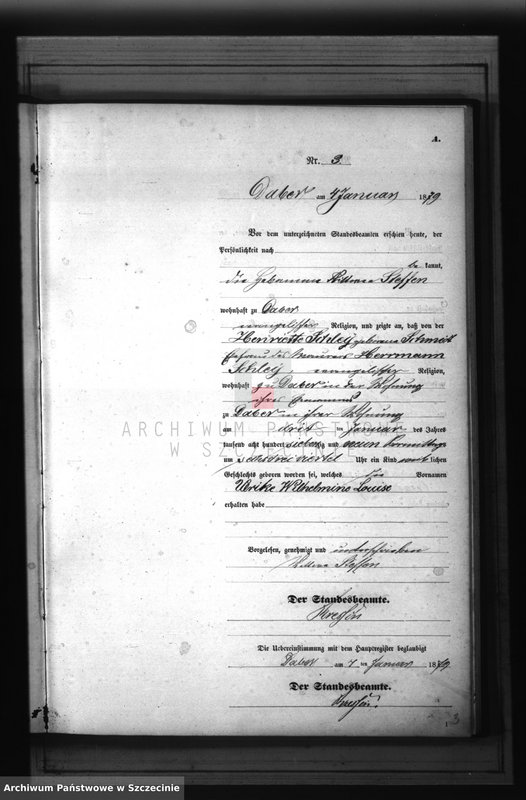 A.
Nr. 3.
Daber am 4 Januar 1879
Vor dem unterzeichneten Standesbeamten erschien heute, der
Persönlichkeit nach
be kannt,
die Hebamme Wittwe Steffen
wohnhaft zu Daber
evangelischer Religion, und zeigte an, daß von der
Henriette Schley geborene Schmidt
Ehefrau des Maurers Herrmann
Schley, evangelischer Religion,
wohnhaft zu Daber in der Wohnung
ihres Ehemannes
zu Daber in ihrer Wohnung
am drei ten Januar des Jahres
tausend acht hundert siebenzig und neun Vormittags
um sechs dreiviertel Uhr ein Kind weiblichen
Geschlechts geboren worden sei, welches die Vornamen
Ulrike Wilhelmine Louise
erhalten habe
Vorgelesen, genehmigt und unterschrieben
Wittwe Steffen
Der Standesbeamte.
Die Uebereinstimmung mit dem Hauptregister beglaubigt
Daber am 4 ten Januar 1879
Der Standesbeamte.
3
ARCHIWUM PAŃSTWOWE
W SZCZECINIE
Archiwum Państwowe w Szczecinie